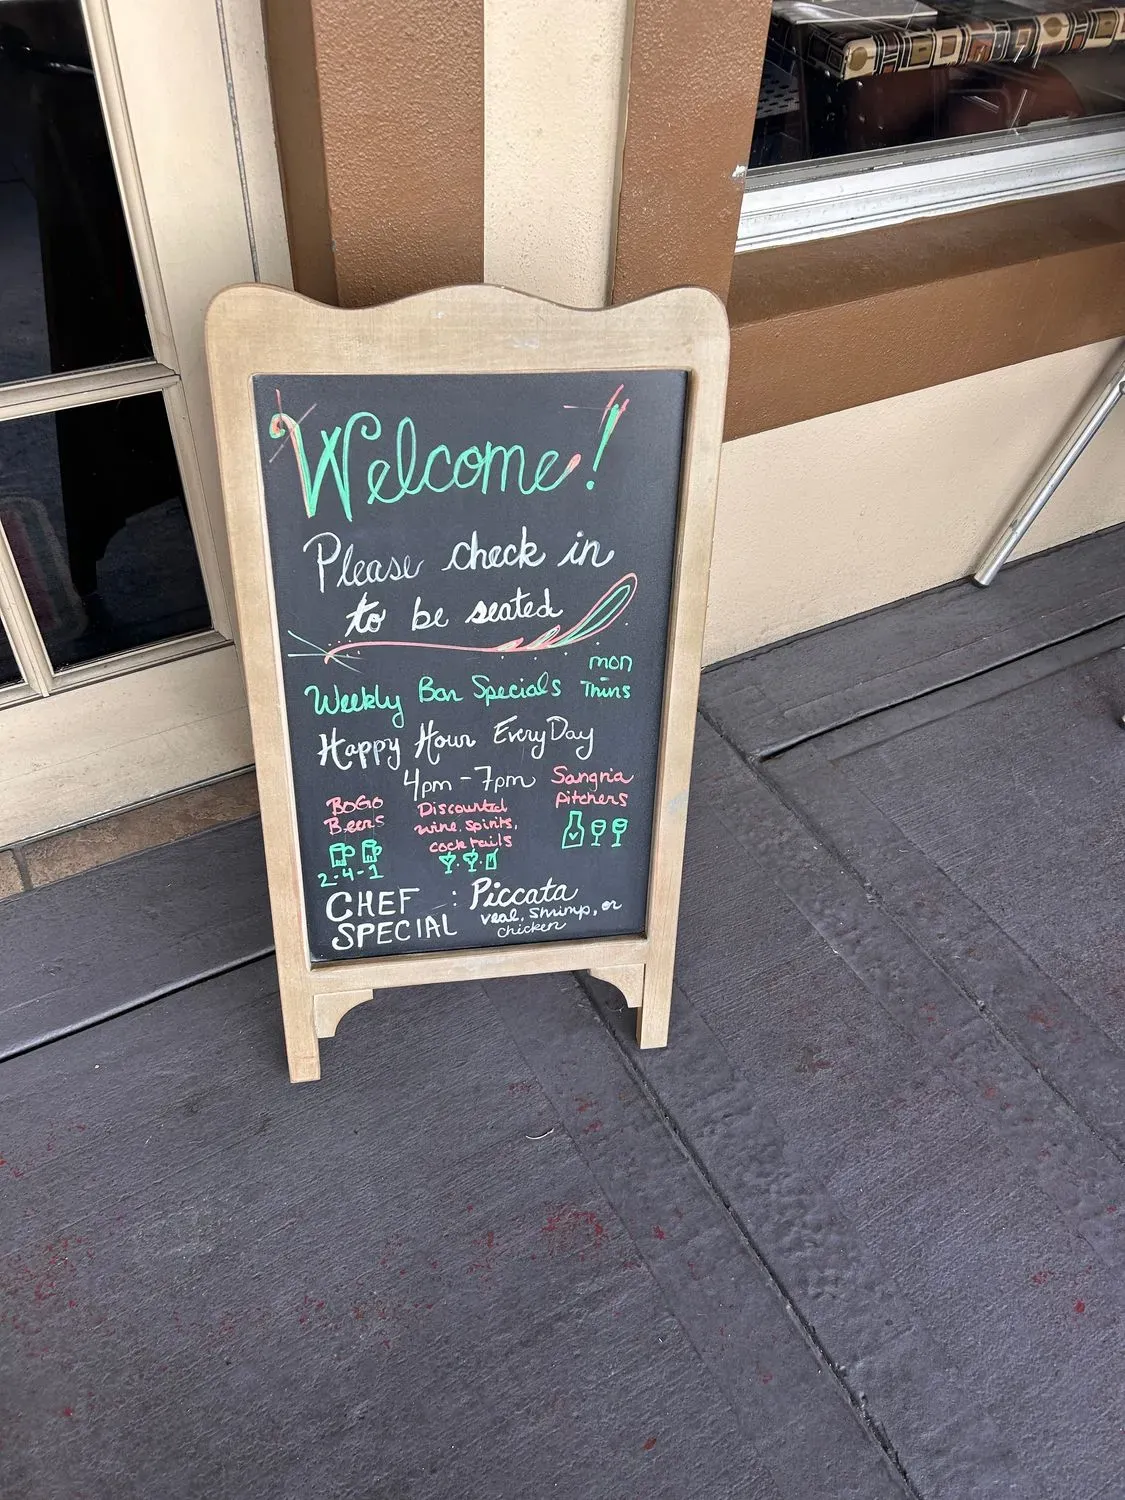 Welcome!
Please check in
to be seated
Weekly Bar Specials mon Thurs
Happy Hour EveryDay
4pm - 7pm
BOGO
Beers
2-4-1
Discounted
wine, spirits,
cocktails
Sangria
pitchers
CHEF
SPECIAL
: Piccata
veal, shrimp, or
chicken